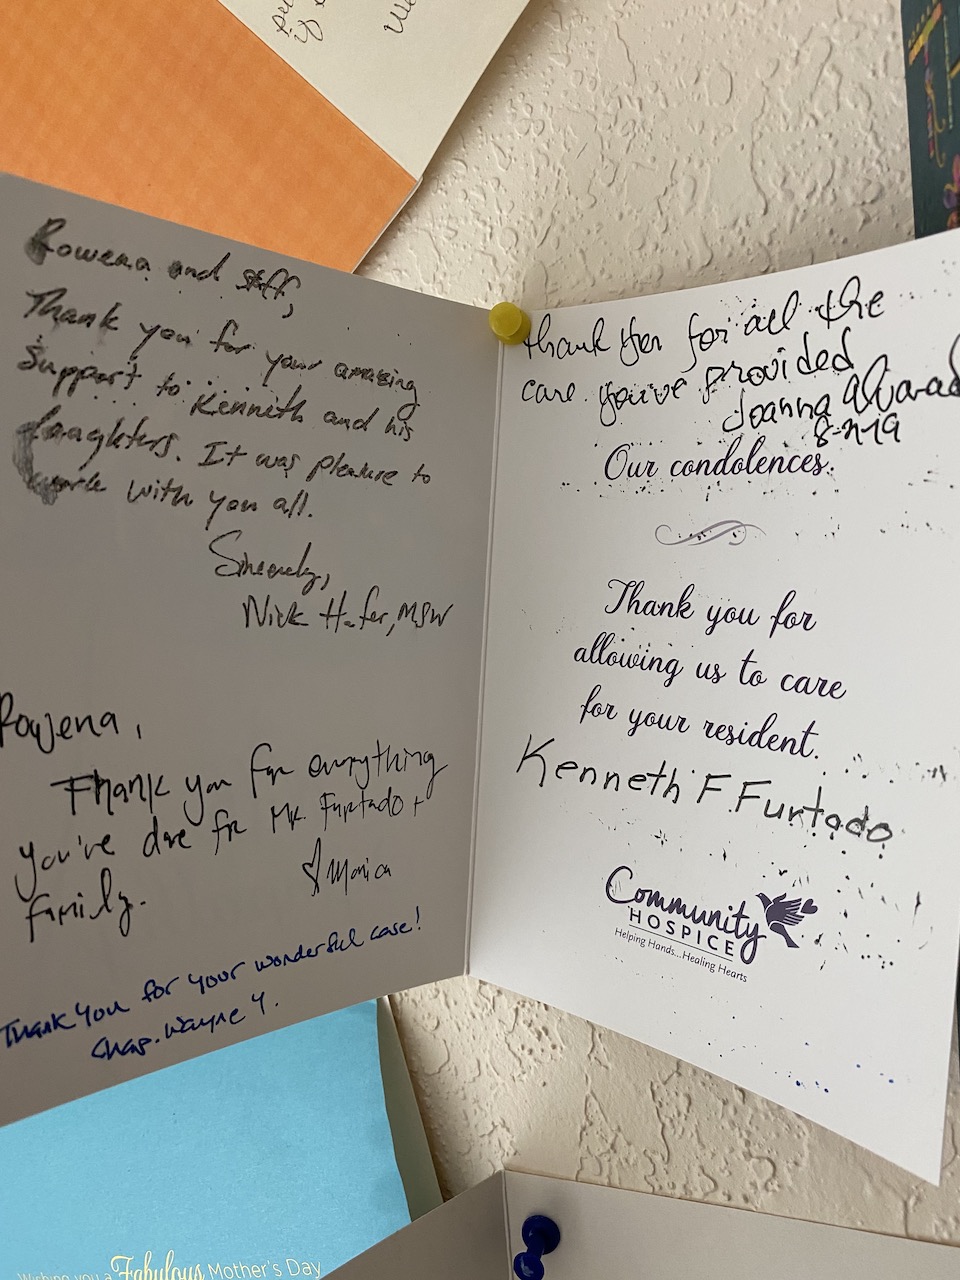 Rowena and staff,
Thank you for your amazing
support to Kennith and his
daughters. It was pleasure to
work with you all.
Sincerely,
Nick Hafer, MSW
Rowena,
Thank you for everything
you've done for Mr. Furtado +
family.
Monica
Thank you for your wonderful care!
Chap. Wayne Y.
thank you for all the
care you've provided
Joanna
Our condolences.
Thank you for
allowing us to care
for your resident.
Kenneth F Furtado
Community
HOSPICE
Helping Hands...Healing Hearts
Wishing you a Fabulous Mother's Day